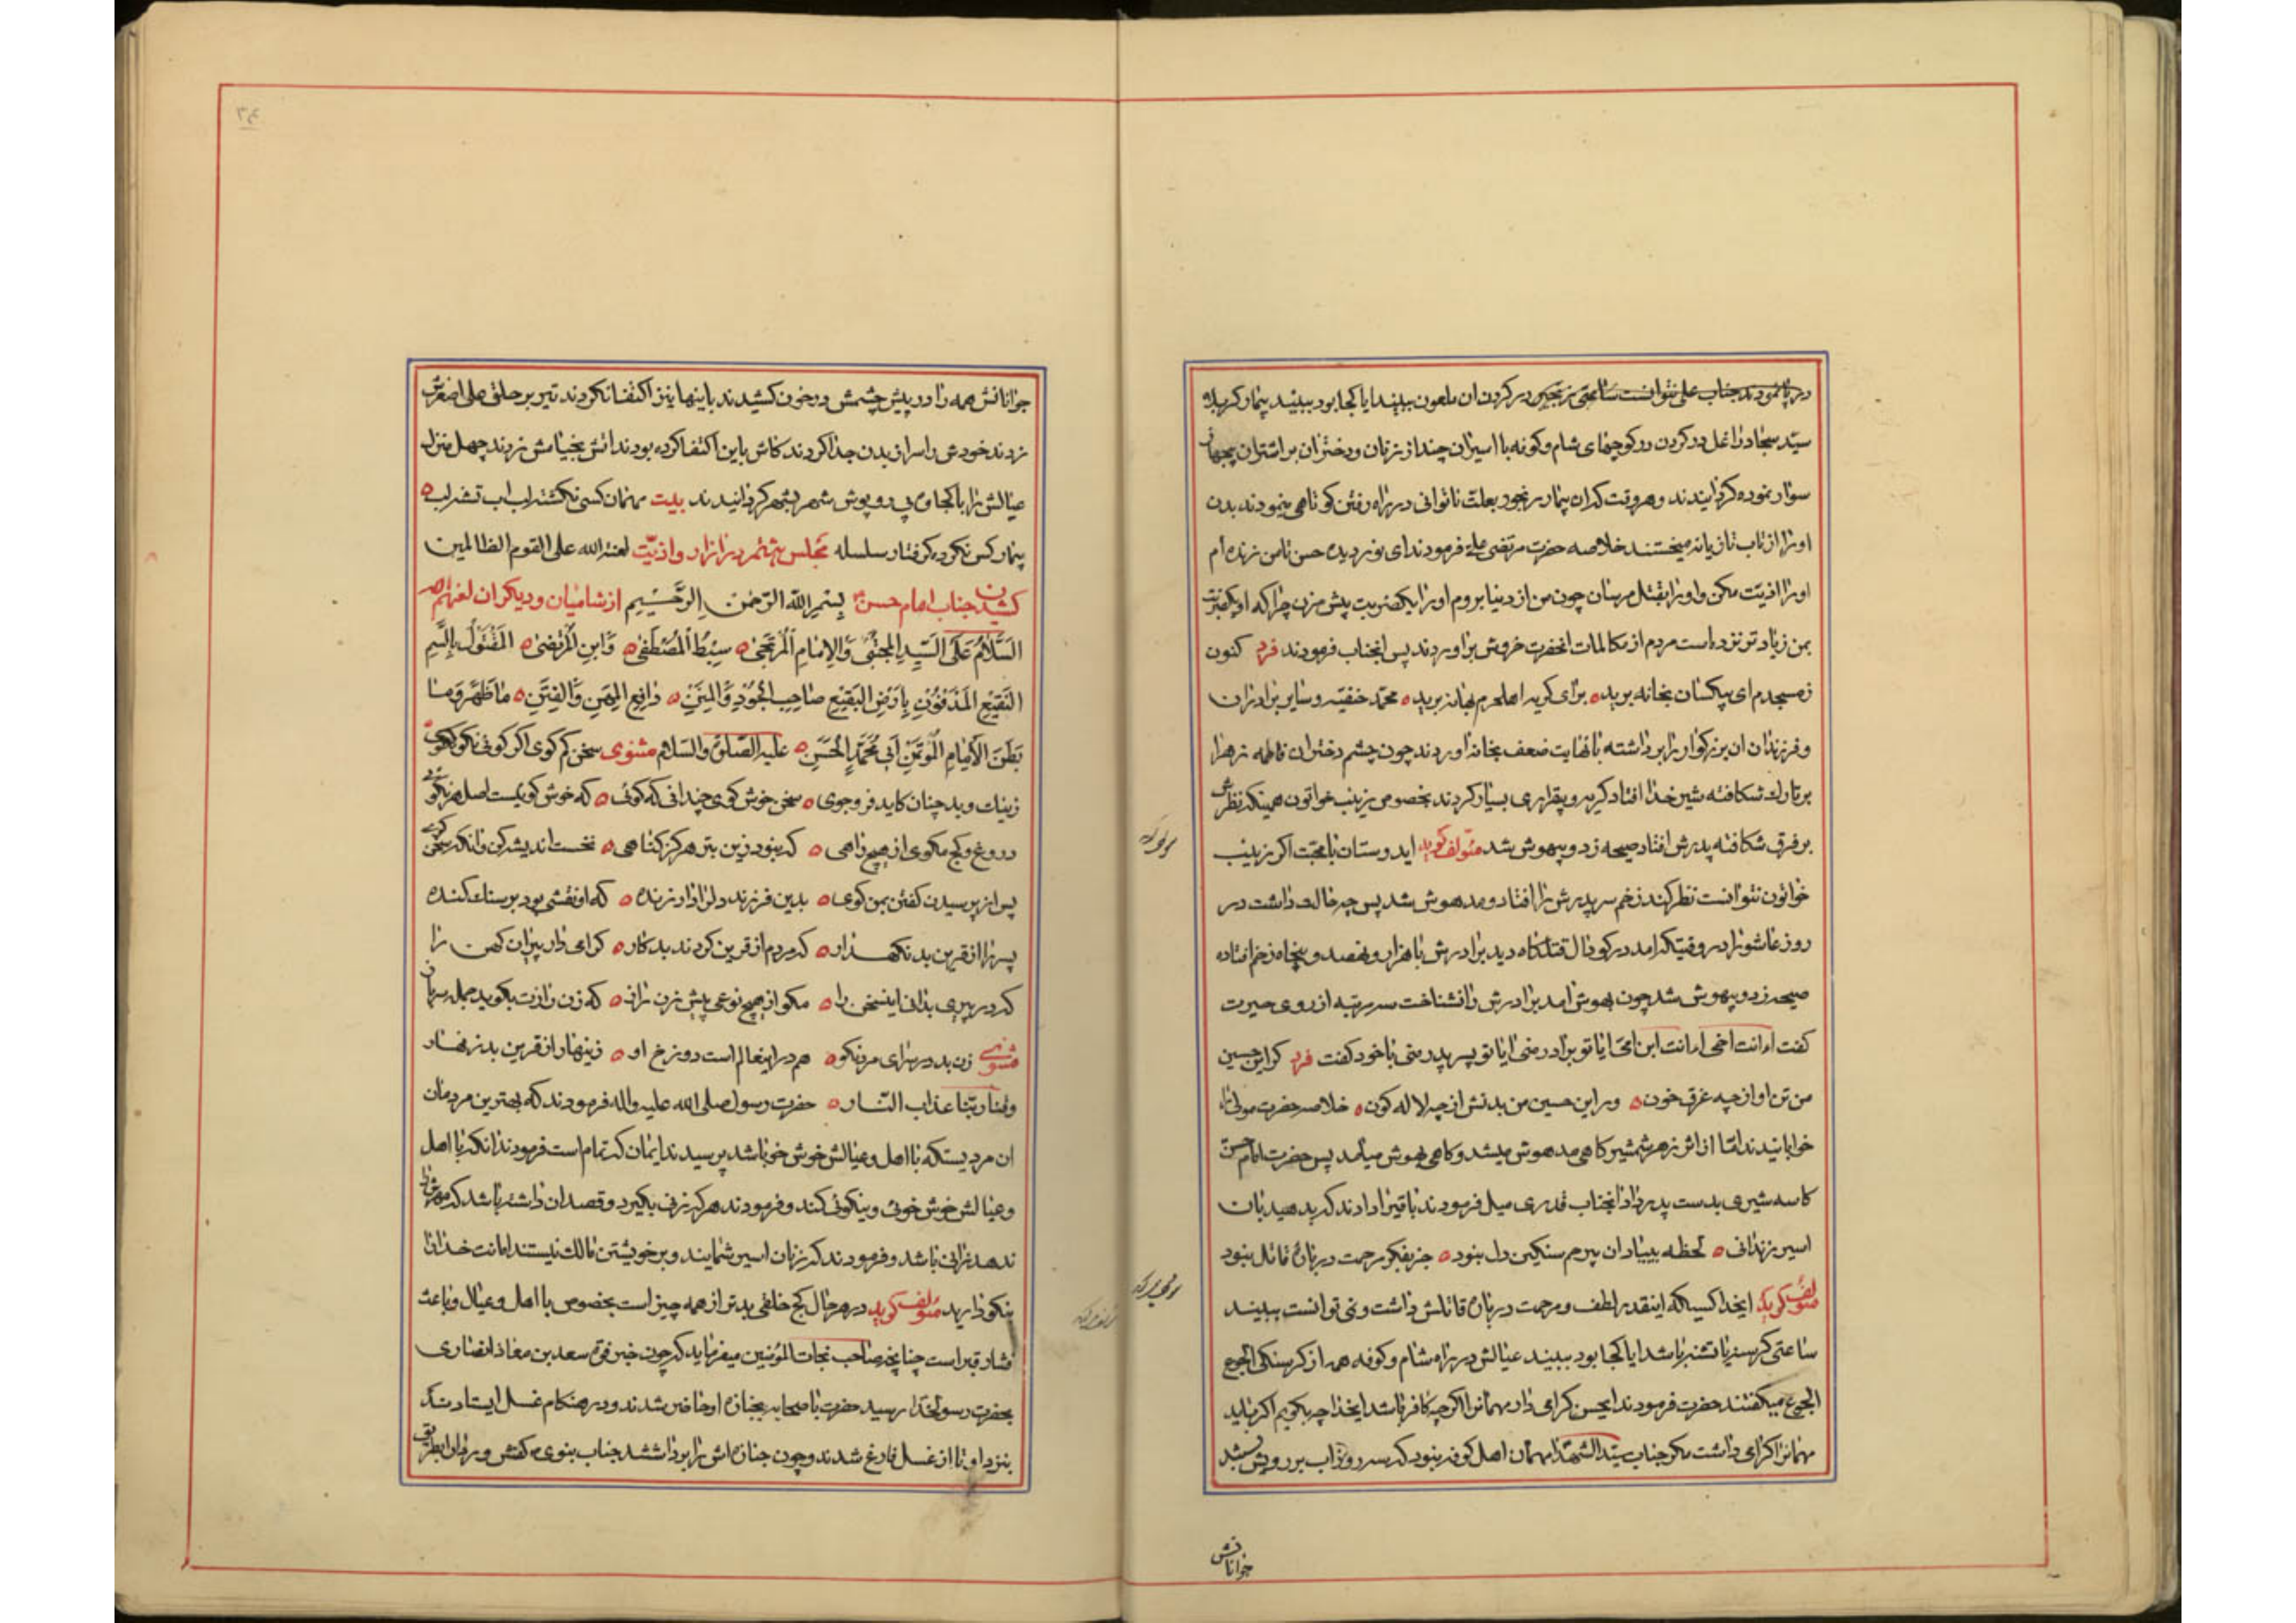 در پا نمودند جناب علی نتوانست ساعتی زنجیر در کردن ان ملعون ببیند ایا کجا بود ببیند بیمار کربلا
سید سجاد را غل در کردن در کوچهای شام و کوفه با اسیران چند از زنان و دختران بر اشتران بیجهاز
سوار نموده کردانیدند و هر وقت که ان بیمار رنجور بعلت ناتوانی در راه رفتن کوتاهی مینمودند بدن
او را از تاب تازیانه میخستند خلاصه حضرت مرتضی علی فرمودند ای نور دیده حسن تا من زنده ام
او را اذیت مکن و او را بقتل مرسان چون من از دنیا بروم او را یکضربت بیش مزن چرا که او یکضربت
بمن زیادتر نزده است مردم از مکالمات انحضرت خروش براوردند پس انجناب فرمودند فرد کنون
ز مسجدم ای بیکسان بخانه برید ه برای کریه اهلحرم بهانه برید ه محمد حنفیه و سایر برادران
و فرزندان ان بزرکوار را برداشته با نهایت ضعف بخانه اوردند چون چشم دختران فاطمه زهرا
بر تارک شکافته شیر خدا افتاد کریه و بیقراری بسیار کردند بخصوص زینب خواتون همینکه نظرش
بر فرق شکافته پدرش افتاد صیحه زد و بیهوش شد مؤلف کوید ایدوستان با محبت اکر زینب
خواتون نتوانست نظر کند زخم سر پدرش را افتاد و مدهوش شد پس چه حالت داشت در
روز عاشورا در وقتیکه امد در کودال قتلکاه دید برادرش با هزار و نهصد و پنجاه زخم افتاده
صیحه زد و بیهوش شد چون بهوش امد برادرش را نشناخت سه مرتبه از روی حیرت
کفت ءانت اخی ءانت ابن امی ایا تو برادر منی ایا تو پسر پدر منی با خود کفت فرد کر این حسین
من تن او از چه غرق خون ه ور این حسین من بدنش از چه لاله کون ه خلاصه حضرت مولی را
خوابانیدند اما از اثر زهر شمشیر کاهی مدهوش میشد و کاهی بهوش میامد پس حضرت امام حسن
کاسه شیری بدست پدر داد انجناب قدری میل فرمودند باقیرا دادند که بدهید بان
اسیر زندانی ه لحظه بیاد ان بیرحم سنکین دل نبود ه جز بفکر مرحمت درباره قاتل نبود
مؤلف کوید ایخدا کسیکه اینقدر لطف و مرحمت درباره قاتلش داشت و نمی توانست ببیند
ساعتی کرسنه یا تشنه باشد ایا کجا بود ببیند عیالش در راه شام و کوفه همه از کرسنکی الجوع
الجوع میکفتند حضرت فرمودند ایحسن کرامی دار مهمانرا اکرچه کافر باشد ایخدا چه بکویم اکر باید
مهمانرا کرامی داشت مکر جناب سید الشهدا مهمان اهل کوفه نبود که سه روز اب بر رویش بستند
جوانانش
۳۴
جوانانش همه را در پیش چشمش در خون کشیدند باینها نیز اکتفا نکردند تیر بر حلق علی اصغرش
زدند خودش را سر از بدن جدا کردند کاش باین اکتفا کرده بودند اتش بخیامش زدند چهل منزل
عیالش را با کجاوه بی روپوش شهر بشهر کردانیدند بیت مهمان کسی نکشته لب اب تشنه لب ه
بیمار کس نکرده کرفتار سلسله مجلس هشتم در ازار و اذیت لعنة الله علی القوم الظالمین
کشیدن جناب امام حسن بسم الله الرحمن الرحیم از شامیان و دیکران لعنهم الله
السَّلامُ عَلَی السَّیِّدِ المُجْتَبی وَالاِمامِ المُرْتَجی ه سِبْطِ المُصْطَفی ه وَابنِ المُرْتَضی ه المَقْتُولِ بِالسَّمِ
النَّقیعِ المَدْفُونِ بِاَرْضِ البَقیعِ صاحِبِ الجُودِ وَالمِنَنِ ه دافِعِ المِحَنِ وَالفِتَنِ ه ما ظَهَرَ وَما
بَطَنَ الاِمامِ المُؤتَمَنِ اَبی مُحَمَّدٍ الحَسَنِ ه علیه الصلوة والسلام مثنوی سخن کم کوی اکر کوئی نکو کوی
ز نیک و بد چنان کاید فروجوی ه سخن خوش کوی چندانی که کوئی ه که خوش کوئیست اصل هر نکوئی
دروغ و کج مکوی از هیچ راهی ه که نبود زین بتر هرکز کناهی ه نخست اندیشه کن وانکه سخن کوی
پس از پرسیدن کفتن بمن کوی ه بدین فرزند دلرا دار زنده ه که او نقشی بود بر سنک کنده
پسر را از قرین بد نکهدار ه که مردم از قرین کردند بدکار ه کرامی دار پیران کهن را
که در پیری بدانی اینسخن را ه مکو از هیچ نوعی پیش زن راز ه که زن رازت بکوید جمله سر باز
مثنوی زن بد در سرای مرد نکو ه هم در اینعالم است دوزخ او ه زینهار از قرین بد زنهار
وقنا ربنا عذاب النار ه حضرت رسول صلی الله علیه واله فرمودند که بهترین مردمان
ان مردیستکه با اهل و عیالش خوش خو باشد پرسیدند ایمان که تمام است فرمودند انکه با اهل
و عیالش خوش خوئی و نیکوئی کند و فرمودند هر که زنی بکیرد و قصد ان داشته باشد که مهرش را
ندهد زانی باشد و فرمودند که زنان اسیر شمایند و بر خویشتن مالک نیستند امانت خدا را
نیکو دارید مؤلف کوید در هر حال کج خلقی بدتر از همه چیز است بخصوص با اهل و عیال و باعث
فشار قبر است چنانچه صاحب نجات المؤمنین میفرماید که چون خبر فوت سعد بن معاذ انصاری
بحضرت رسولخدا رسید حضرت با صحابه بجنازه او حاضر شدند و در هنکام غسل ایستادند
بنزد او تا از غسل فارغ شدند و چون جنازه اش را برداشتند جناب نبوی بی کفش و ردا از طریق